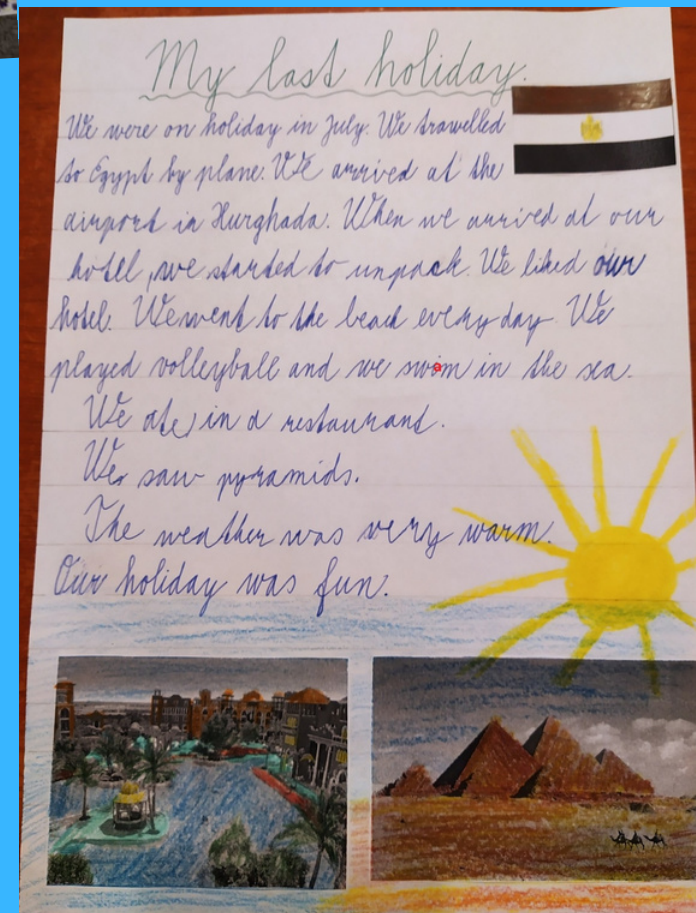 My last holiday.
We were on holiday in July. We trawelled
to Egypt by plane. We arrived at the
airport in Hurghada. When we arrived at our
hotell, we started to unpack. We liked our
hotel. We went to the beach every day. We
played volleyball and we swim in the sea.
We ate in a restaurant.
We saw pyramids.
The weather was wery warm.
Our holiday was fun.